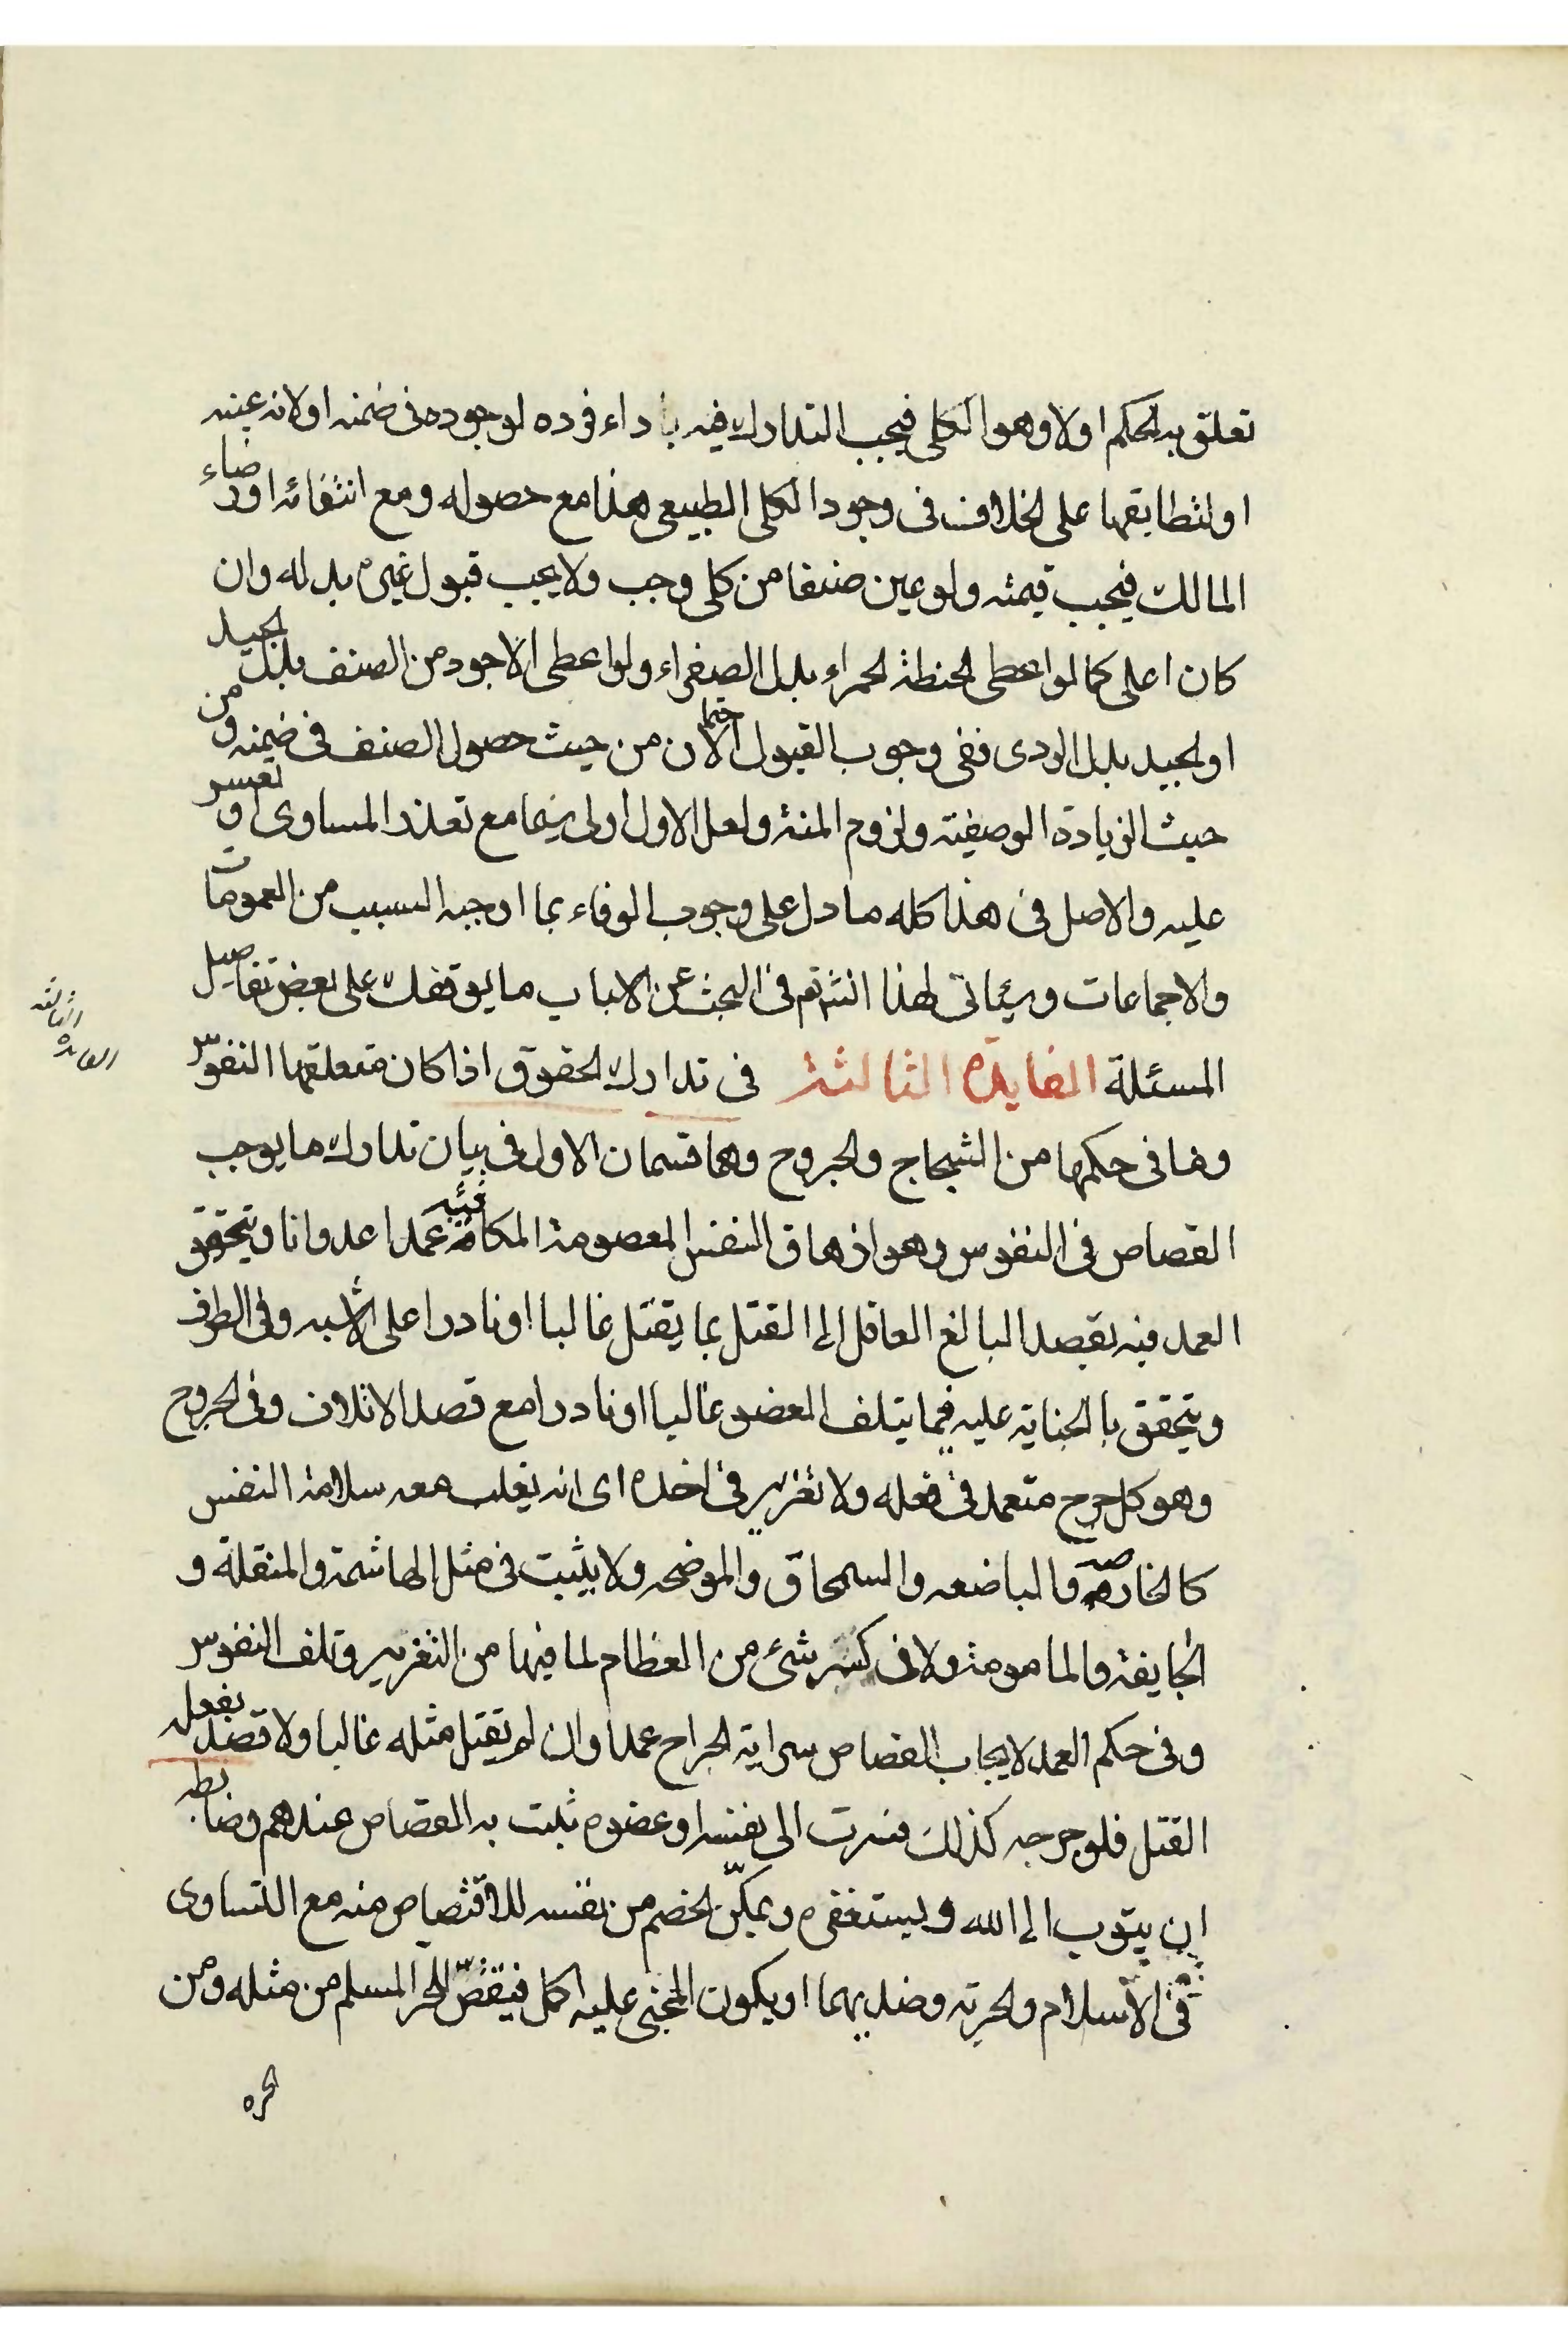 تعلق به الحكم اولا وهو الكلى فيجب التدارك فيه باداء فرده لوجوده فى ضمنه اولانه عينه
او لتطابقهما على الخلاف فى وجود الكلى الطبيعى هذا مع حصوله ومع انتفائه او رضاء
المالك فيجب قيمته ولو عين صنفا من كلى وجب ولا يجب قبول غيره بدله وان
كان اعلى كما لو اعطى الحنطة الحمراء بدل الصفراء ولو اعطى الاجود من الصنف بدل الجيد
او الجيد بدل الردى ففى وجوب القبول احتمالان من حيث حصول الصنف فى ضمنه ومن
حيث الزيادة الوصفية ولزوم المنة ولعل الاول اولى سيما مع تعذر المساوى او تعسر
عليه والاصل فى هذا كله ما دل على وجوب الوفاء بما اوجبه السبب من العمومات
والاجماعات وسياتى لهذا تتم فى البحث عن الاسباب ما يوقفك على بعض تفاصيل
المسئلة الفايدة الثالثة فى تدارك الحقوق اذا كان متعلقها النفوس
الفايدة الثالثة
وما فى حكمها من الشجاج والجروح وهما قسمان الاول فى بيان تدارك ما يوجب
القصاص فى النفوس وهو ازهاق النفس المعصومة المكافئة عمدا عدوانا ويتحقق
العمد فيه بقصد البالغ العاقل الى القتل بما يقتل غالبا او نادرا على الاشبه وفى الطرف
ويتحقق بالجناية عليه فيما يتلف العضو غالبا او نادرا مع قصد الاتلاف وفى الجروح
وهو كل جرح متعمد فى فعله ولا تغرير فى اخذه اى انه يغلب معه سلامة النفس
كالخارصه والباضعه والسمحاق والموضحه ولا يثبت فى مثل الهاشمة والمنقلة و
الجايفة والمامومة ولا فى كسر شئ من العظام لما فيها من التغرير وتلف النفوس
وفى حكم العمد لايجاب القصاص سراية الجراح عمدا وان لم يقتل مثله غالبا ولا قصد بفعله
القتل فلو جرحه كذلك فسرت الى نفسه او عضوه ثبت به القصاص عندهم وضابطه
ان يتوب الى الله ويستغفره ويمكّن الخصم من نفسه للاقتصاص منه مع التساوى
فى الاسلام والحرية وضديهما او يكون المجنى عليه اكمل فيقتصّ للحر المسلم من مثله ومن
الحره